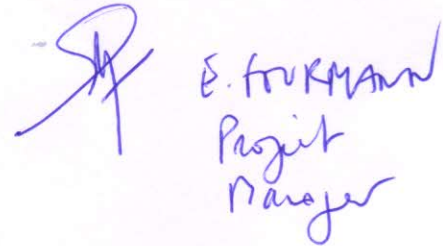 E. FOURMANN
Project
Manager